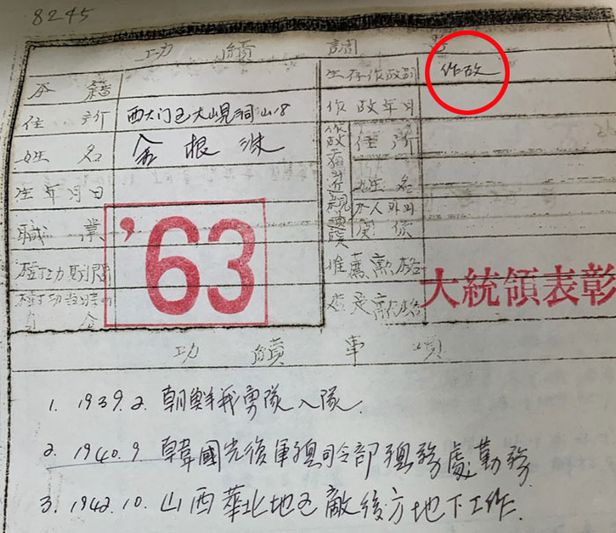 8245
功績調書
本籍
生存作故別 作故
住所 西大门区大峴洞山18
作故年月
姓名 金根洙
住所
生年月日
姓名
職業
'63
推薦勲格
大統領表彰
功績事項
1. 1939.2. 朝鮮義勇隊入隊.
2. 1940.9. 韓國光復軍總司令部總務處勤務
3. 1942.10. 山西華北地区敵後方地下工作.